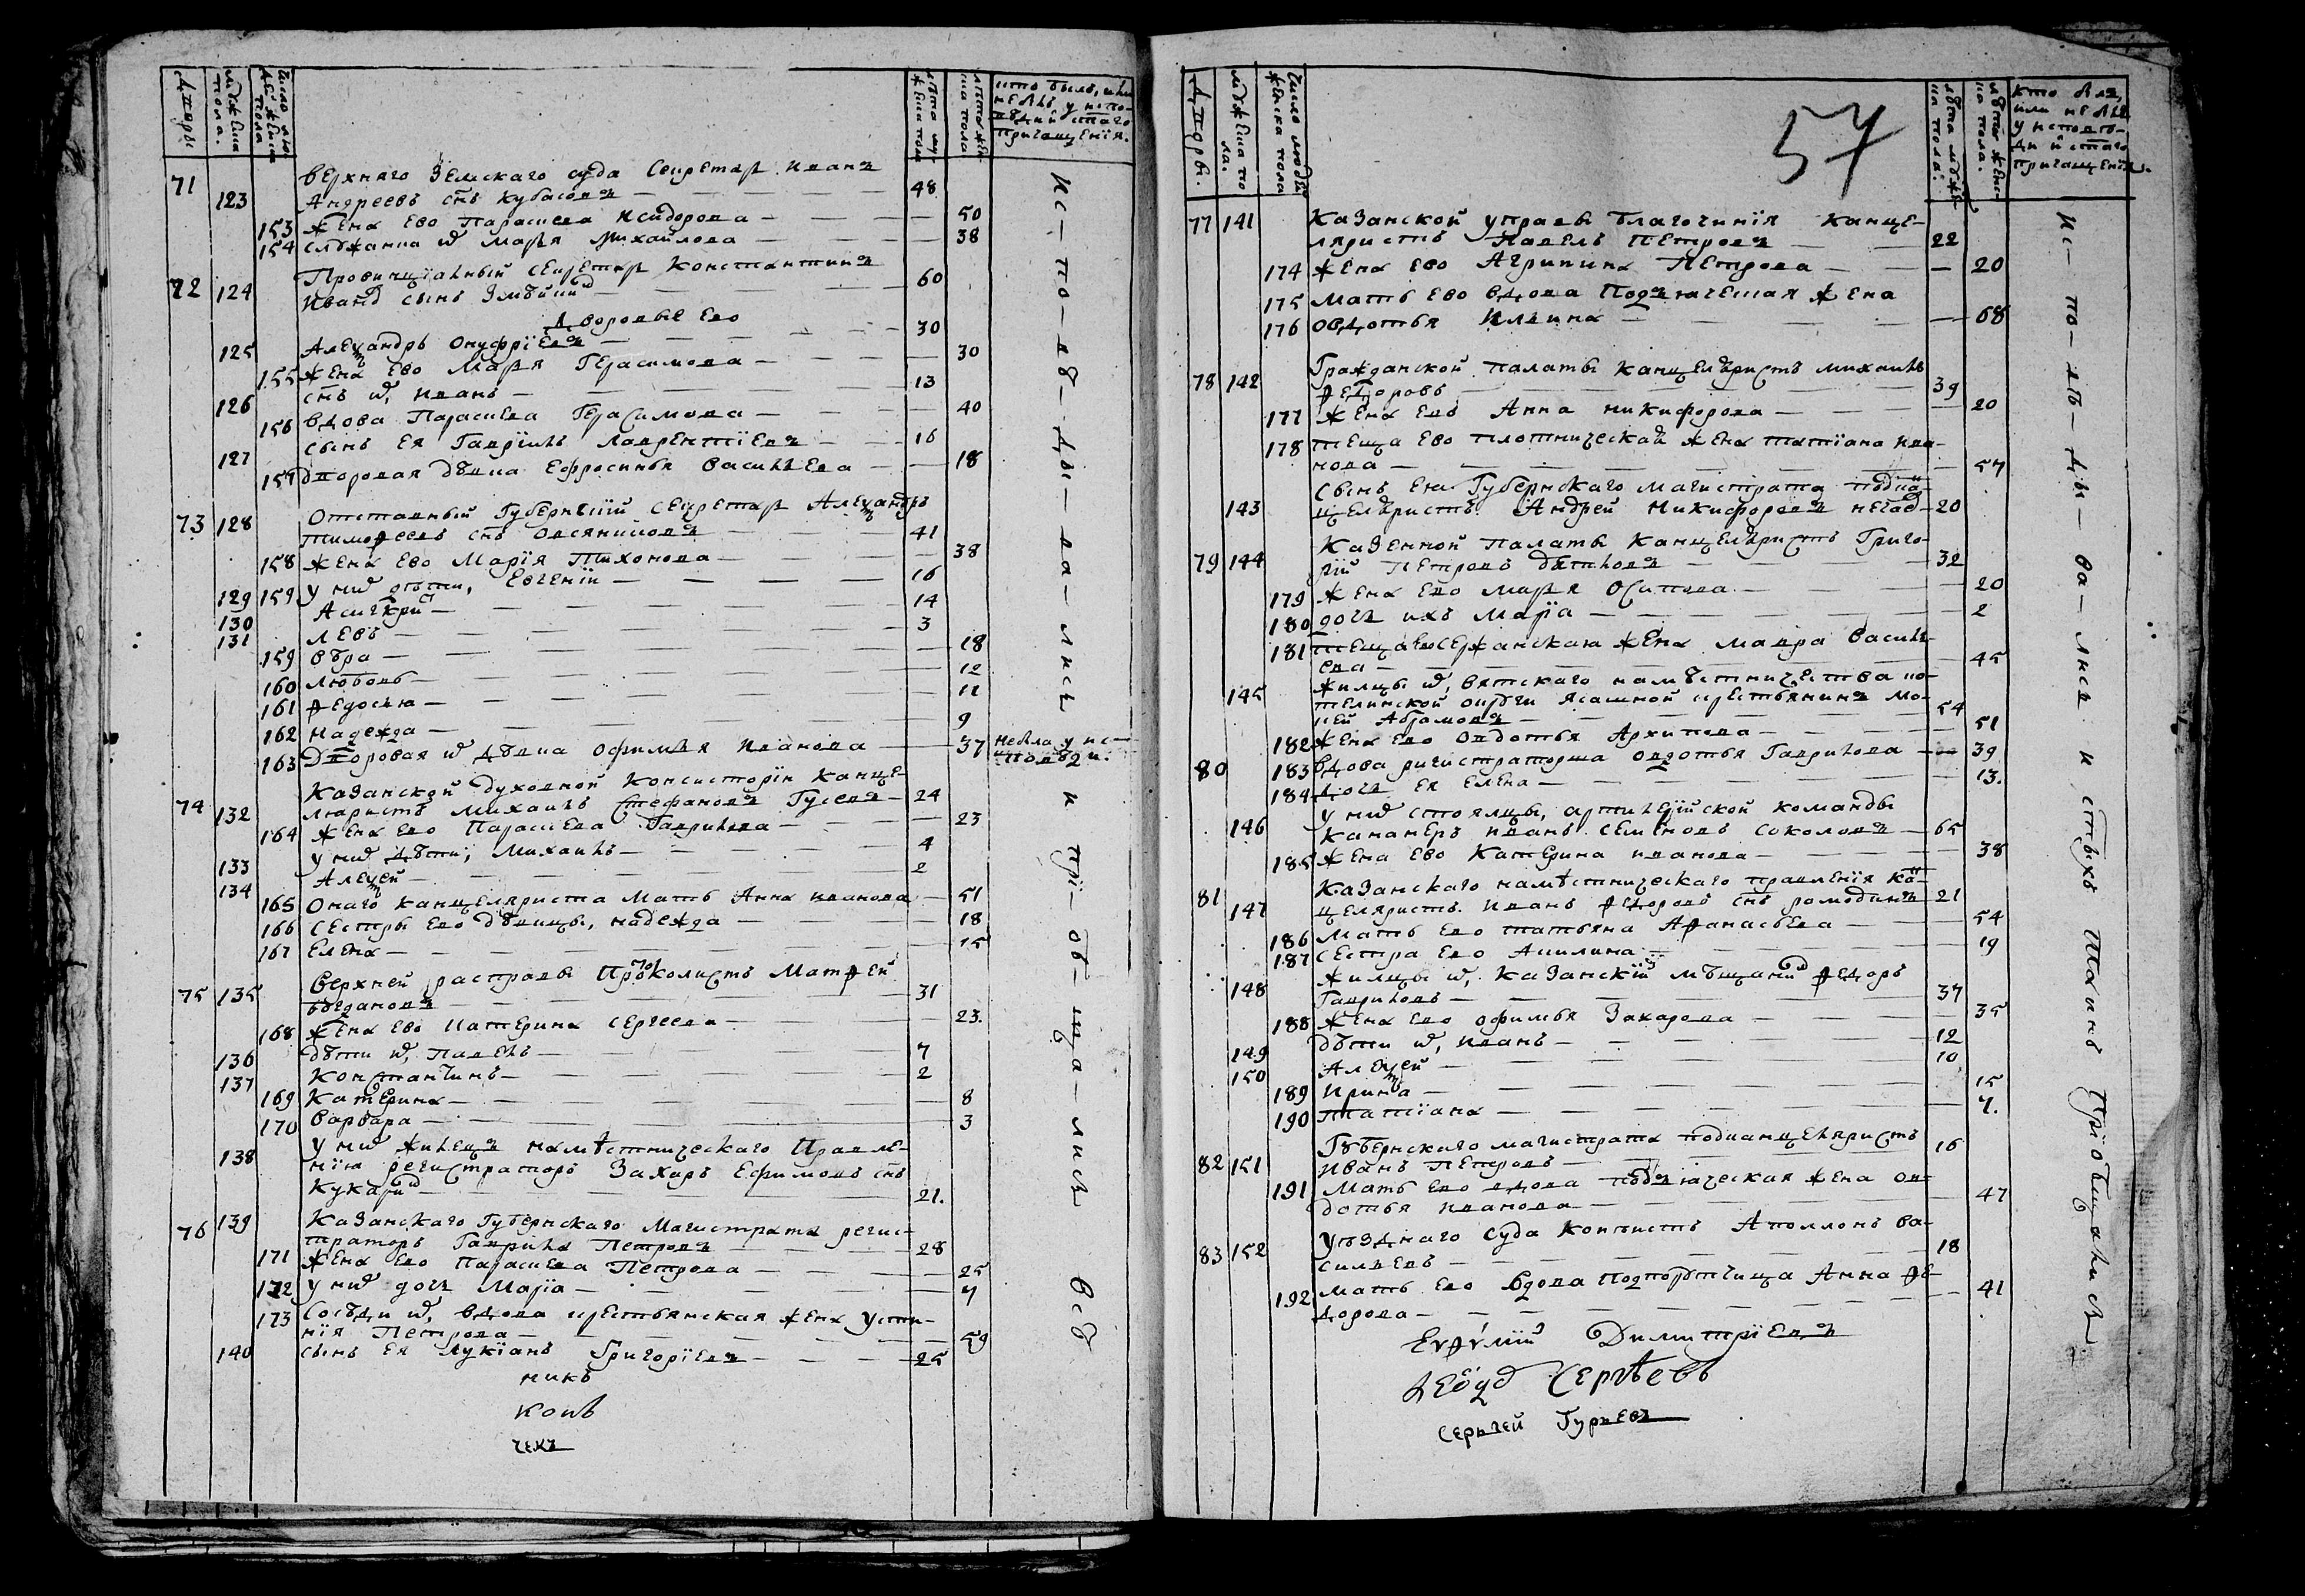 Дворы
Мужеска пола.
Число людей женска пола
лета мужеска пола
лета женска пола.
кто былъ, или не былъ у исповеди и стаго причащенїя.
71 123 Верхняго Земскаго суда Секретарь Иванъ
Андреевъ снъ Кубасовъ — 48
153 жена ево Парасковья Исидорова — 50
154 служанка их Марья Михайлова — 38
72 124 Провинцїалный Секретарь Константинъ
Иванов сынъ — 60
Дворовые ево
125 Александръ Онуфрїевъ — 30
155 жена ево Марья Герасимова — 30
126 снъ их, Иванъ — 13
156 вдова Парасковья Герасимова — 40
127 сынъ ея Гаврїилъ Лаврентїевъ — 16
157 дворовая девка Ефросинья Васильева — 18
73 128 Отставный Губернскїй Секретарь Александръ
Тимофеевъ снъ Овсяниковъ — 41
158 жена ево Марїя Тихонова — 38
129 159 у них дети, Евгенїи — 16
130 Асигкрит — 14
131 Левъ — 3
159 Вѣра — 18
160 Любовь — 12
161 Федосья — 11
162 Надежда — 9
163 Дворовая их девка Офимья Иванова — 37 не была у исповеди.
74 132 Казанской Духовной Консисторїи Канце-
ляристъ Михаилъ Стефановъ Гусевъ — 24
164 жена ево Парасковья Гаврилова — 23
133 у них дети, Михаилъ — 4
134 Алексей — 2
165 Онаго канцеляриста мать Анна Иванова — 51
166 Сестры ево девицы, Надежда — 18
167 Елена — 15
75 135 Верхней расправы Протоколистъ Матфей
Богдановъ — 31
168 жена ево Катерина Сергеева — 23.
136 дети их, Павелъ — 7
137 Константинъ — 2
169 Катерина — 8
170 Варвара — 3
138 У них жилецъ наместническаго Правле-
нїя регистраторъ Захаръ Ефимовъ снъ
— 21.
76 139 Казанскаго Губернскаго Магистрата регис-
траторъ Гаврила Петровъ — 28
171 жена ево Парасковья Петрова — 25
172 у них дочь Марїа — 4
173 Соседи их, вдова крестьянская жена Усти-
нїя Петрова — 59
140 сынъ ея Лукїанъ Григорїевъ — 25
ис-по-ве-ды-ва-лись и прї-об-ща-лись все
57
Дворы.
Мужеска пола.
Число людей женска пола
лета мужеска пола.
лета женска пола.
кто былъ, или не былъ у исповеди и стаго причащенїя.
77 141 Казанской управы благочинїя канце-
ляристъ Павелъ Петровъ — 22
174 жена ево Агрипина Петрова — 20
175 мать ево вдова Подьяческая жена
176 Овдотья Ильина — 68
78 142 Гражданской палаты канцеляристъ Михаилъ
Федоровъ — 39
177 жена ево Анна Никифорова — 20
178 теща ево плотническая жена Татїана Ива-
нова — 57
Сынъ ея Губернскаго магистрата подкан-
143 целяристъ Андрей Никифоровъ — 20
79 144 Казенной палаты канцеляристъ Григо-
рїй Петровъ — 32
179 жена ево Марья Осипова — 20
180 дочь ихъ Марїа — 2
181 теща ево сержанская жена Мавра Василь-
ева — 45
145 жилцы их, Вятскаго наместничества ко-
телнской округи ясашной крестьянинъ Мо-
кей Абрамовъ — 54
182 жена ево Овдотья Архипова — 51
80 183 Вдова регистраторша Овдотья Гаврилова — 39
184 дочь ея Елена — 13.
146 у них стоялцы, артилерїйской команды
Кананеръ Иванъ Семеновъ Соколовъ — 65
185 жена ево Катерина Иванова — 38
81 147 Казанскаго наместническаго правленїя кан-
целяристъ Иванъ Федоровъ снъ Ромодинъ 21
186 Мать ево Татьяна Афанасьева — 54
187 Сестра ево Акилина — 19
148 жилцы их, Казанскїй мещанин Федоръ
Гавриловъ — 37
188 жена ево Офимья Захарова — 35
149 дети их, Иванъ — 12
150 Алексей — 10
189 Ирина — 15
190 Татїана — 7.
82 151 Губернскаго магистрата подканцеляристъ
Иванъ Петровъ — 16
191 Мать ево вдова подьяческая жена Ов-
дотья Иванова — 47
83 152 Уезднаго Суда копїистъ Аполлонъ Ва-
сильевъ — 18
192 мать ево вдова Подпорутчица Анна Фе-
дорова — 41
ис-по-ве-ды-ва-лись и стыхъ таинъ прїобщались
никъ
Димитрїевъ
Сергѣевъ
Сергей Гурьевъ